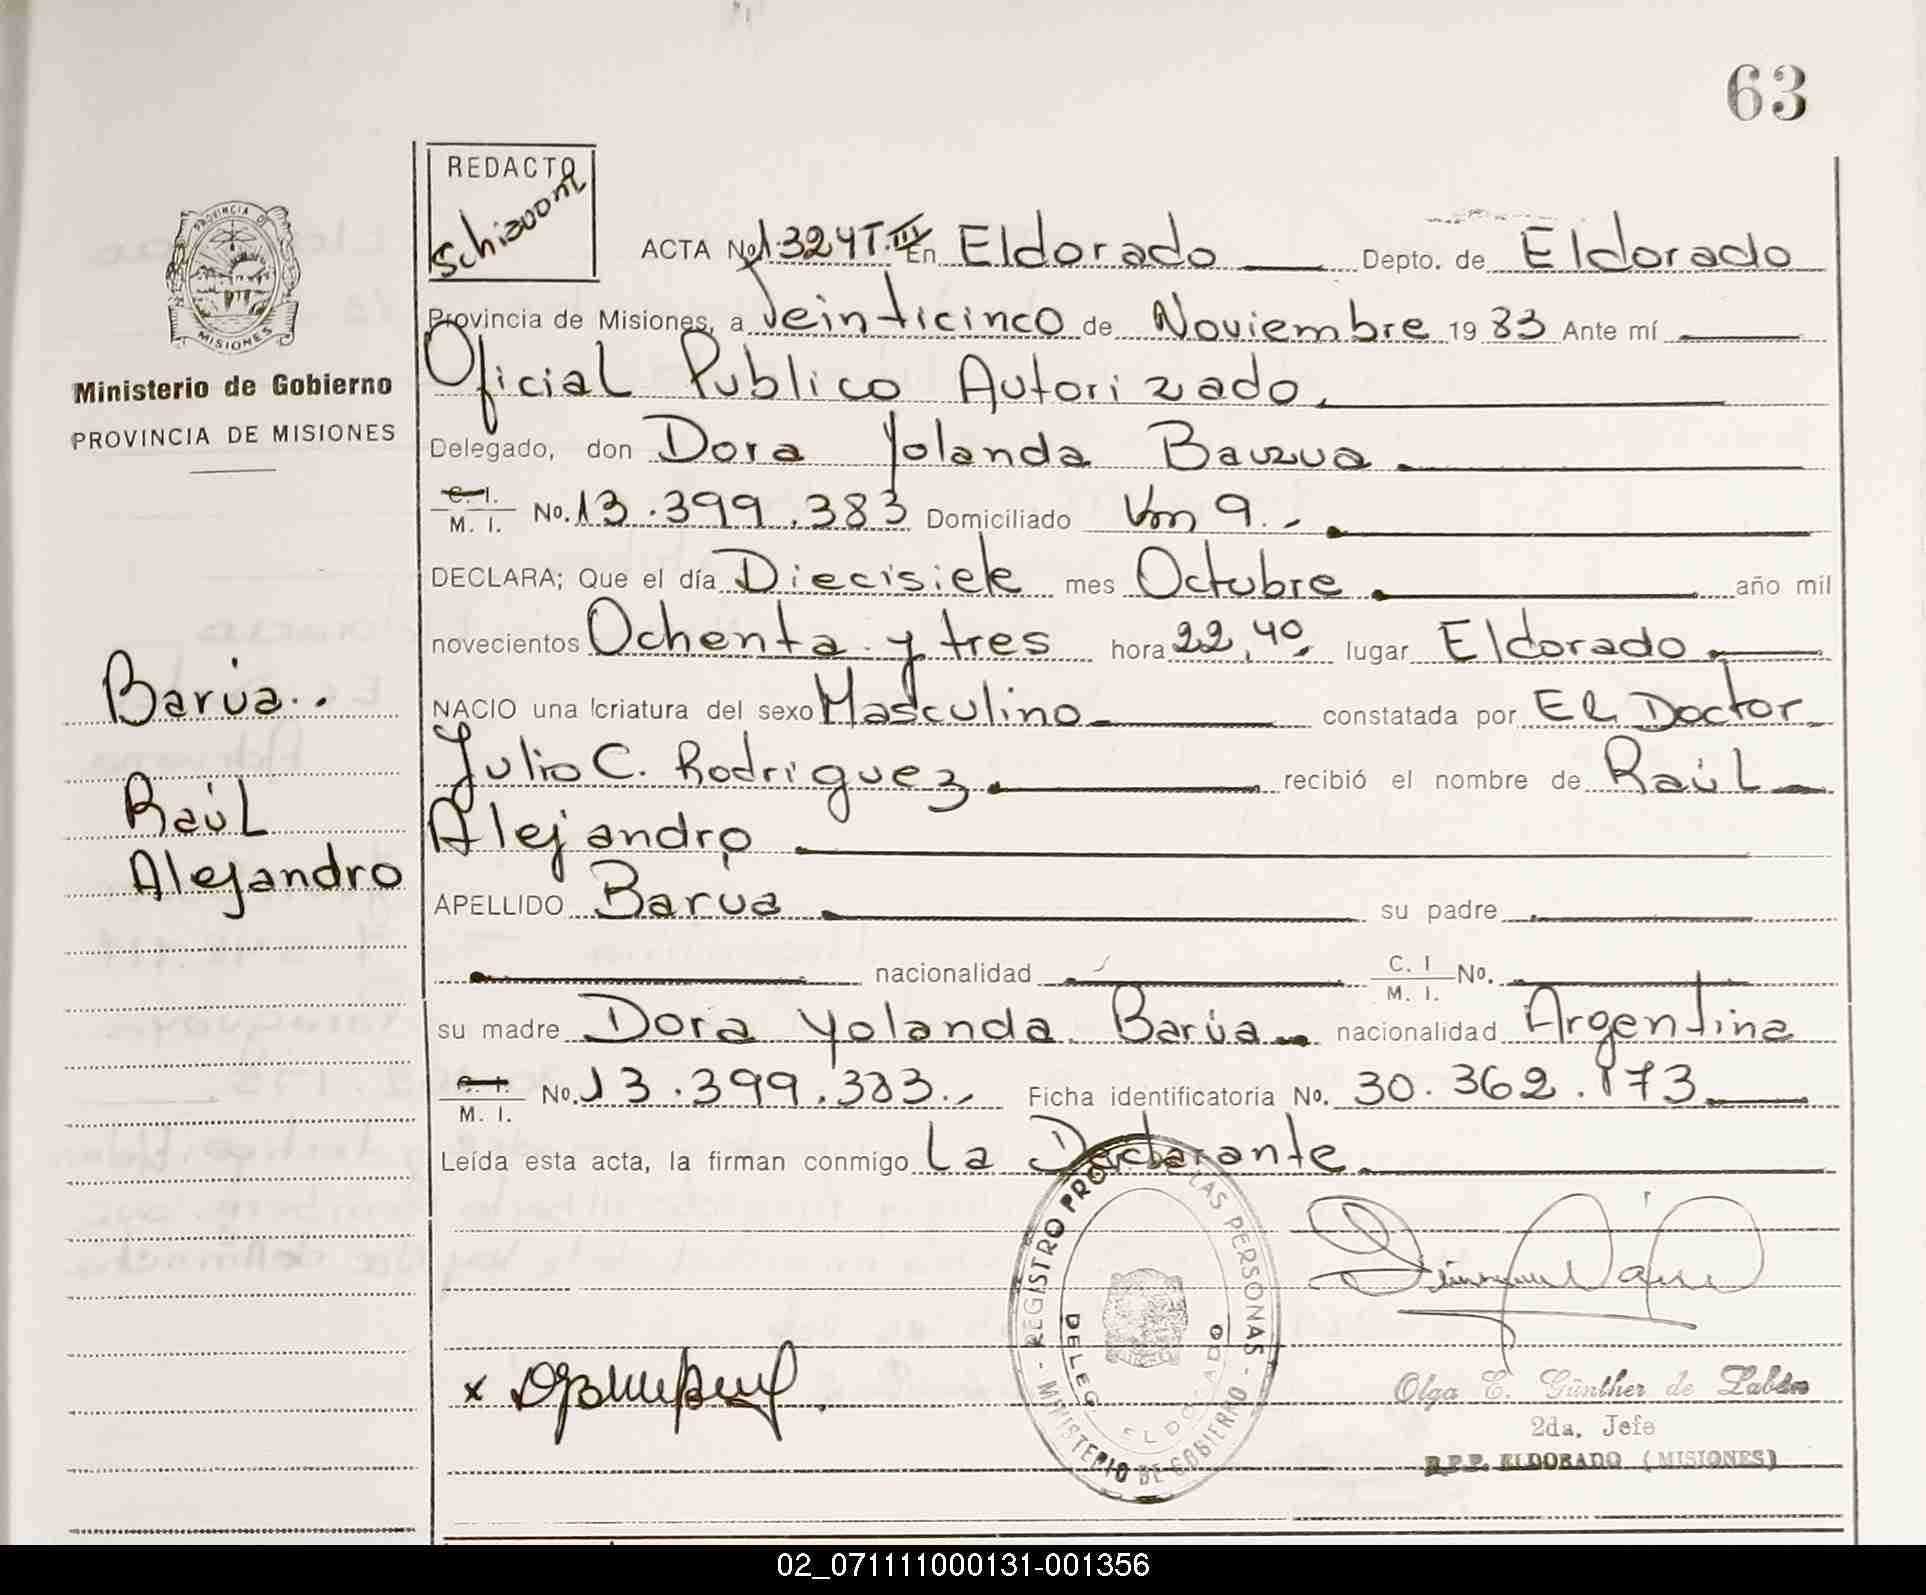 63
REDACTO
Schiavoni
ACTA No. 1.324 T. III En Eldorado Depto. de Eldorado
Provincia de Misiones, a Veinticinco de Noviembre 19 83 Ante mí
Oficial Publico Autorizado.
Delegado, don Dora Yolanda Bauzua
C. I. M. I. No. 13.399.383 Domiciliado Km 9.-
DECLARA; Que el día Diecisiete mes Octubre año mil
novecientos Ochenta y tres hora 22,40. lugar Eldorado
NACIO una criatura del sexo Masculino constatada por El Doctor
Julio C. Rodriguez recibió el nombre de Raúl
Alejandro
APELLIDO Barua su padre
nacionalidad C. I M. I. No.
su madre Dora Yolanda Barúa nacionalidad Argentina
C. I. M. I. No. 13.399.383.- Ficha identificatoria No. 30.362.173
Leída esta acta, la firman conmigo La Declarante.
PROVINCIA DE
MISIONES
Ministerio de Gobierno
PROVINCIA DE MISIONES
Barúa..
Raúl
Alejandro
REGISTRO PRO LAS PERSONAS
DELEG ELDORADO
- MINISTERIO DE GOBIERNO -
x
Olga E. Günther de
2da. Jefe
R.P.P. ELDORADO (MISIONES)
02_071111000131-001356